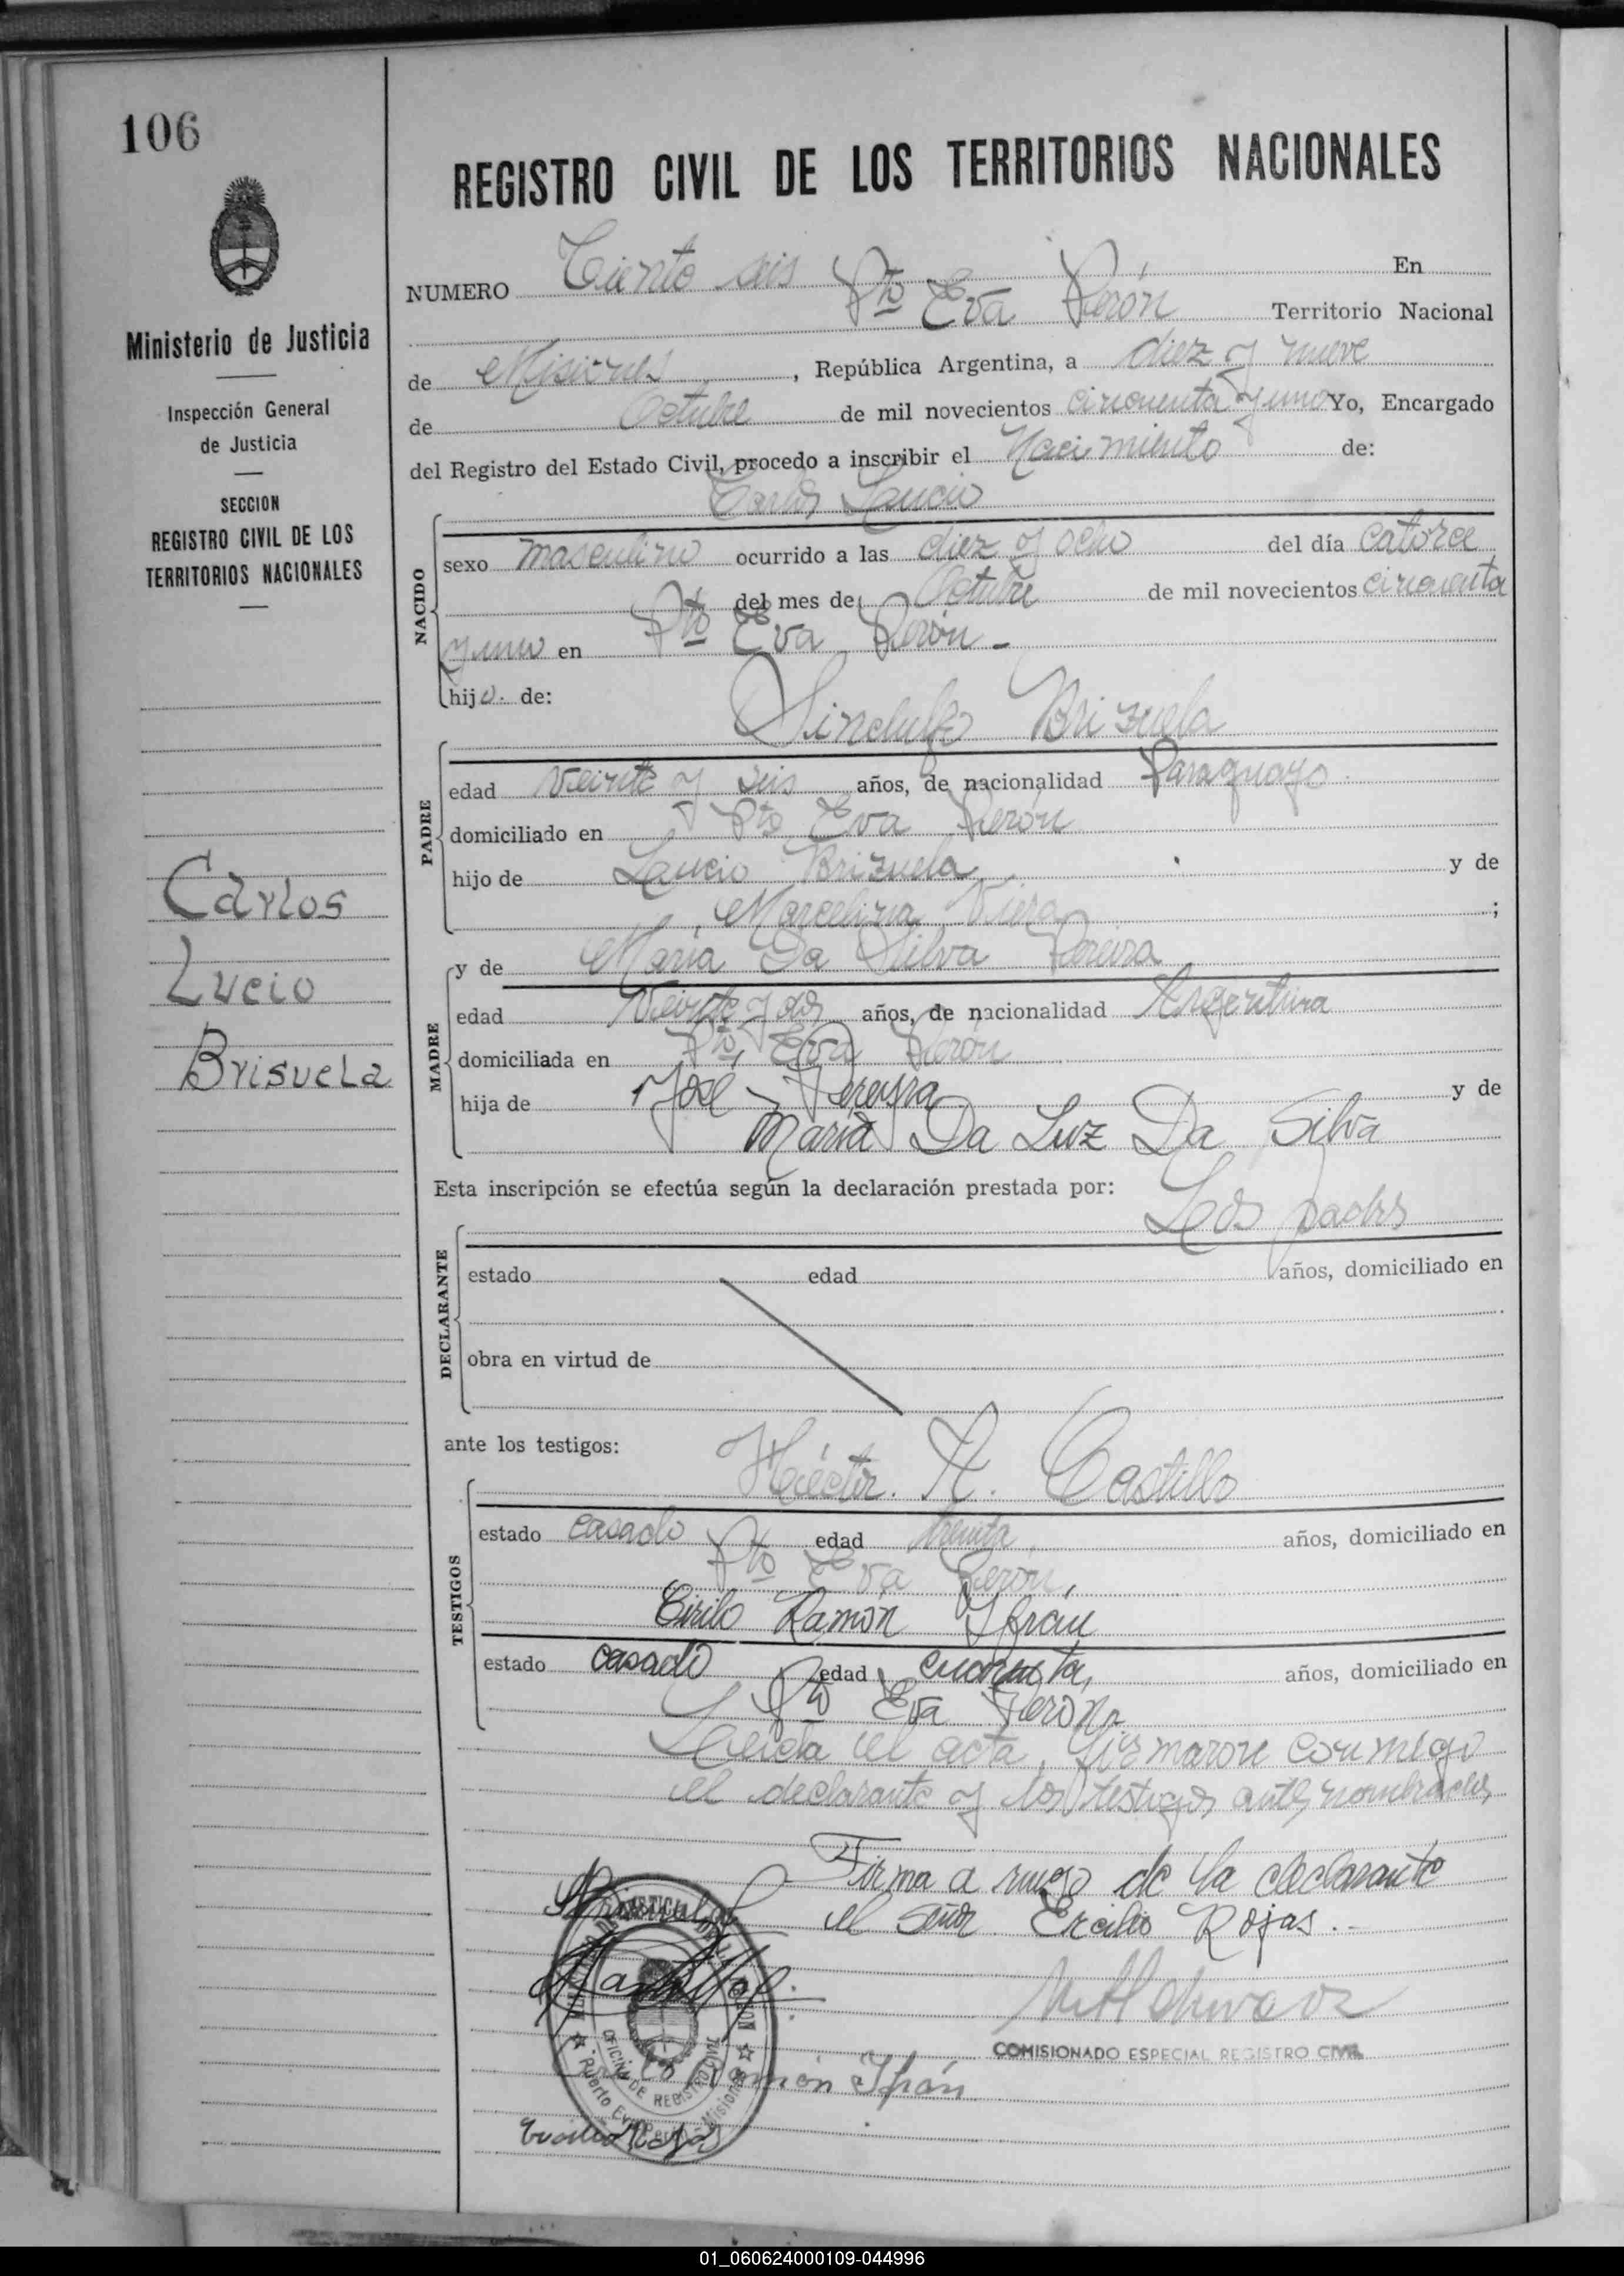 106
Ministerio de Justicia
Inspección General
de Justicia
SECCION
REGISTRO CIVIL DE LOS
TERRITORIOS NACIONALES
Carlos
Lucio
Brisuela
REGISTRO CIVIL DE LOS TERRITORIOS NACIONALES
NUMERO Ciento seis En
Pto Eva Perón Territorio Nacional
de Misiones, República Argentina, a diez y nueve
de Octubre de mil novecientos cincuenta y uno Yo, Encargado
del Registro del Estado Civil, procedo a inscribir el Nacimiento de:
Carlos Laucio
NACIDO
sexo masculino ocurrido a las diez y ocho del día catorce
del mes de Octubre de mil novecientos cincuenta
y uno en Pto Eva Perón.-
hijo. de:
Sindulfo Brizuela
PADRE
edad veinte y seis años, de nacionalidad Paraguayo
domiciliado en Pto Eva Perón
hijo de Laucio Brizuela y de
Marcelina Viera;
MADRE
y de María Da Silva Pereira
edad Veinte y dos años, de nacionalidad Argentina
domiciliada en Pto, Eva Perón
hija de José Pereyra y de
María Da Luz Da Silva
Esta inscripción se efectúa según la declaración prestada por:
Los padres
DECLARANTE
estado edad años, domiciliado en
obra en virtud de
ante los testigos:
Héctor. A. Castillo
TESTIGOS
estado casado edad treinta años, domiciliado en
Pto Eva Perón,
Cirilo Ramón Yfrán
estado casado edad cuarenta, años, domiciliado en
Pto Eva Perón
Leída el acta, firmaron conmigo
el declarante y los testigos antes nombrados,
Firma a ruego de la declarante
el señor Ercilio Rojas.-
COMISIONADO ESPECIAL REGISTRO CIVIL
OFICINA DE REGISTRO CIVIL
Puerto Eva Perón Misiones
Ramón Ifrán
01_060624000109-044996